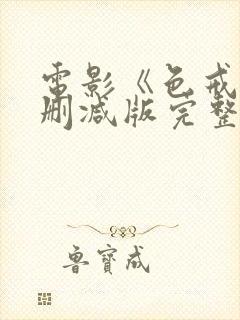 電影《色戒
刪減版完整
魯寶成